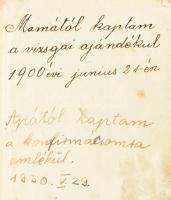 Mamától kaptam
a vizsgai ajándékul
1900 évi junius 21-én
Apától kaptam
a konfirmációmra
emlékül.
1930. V. 29.